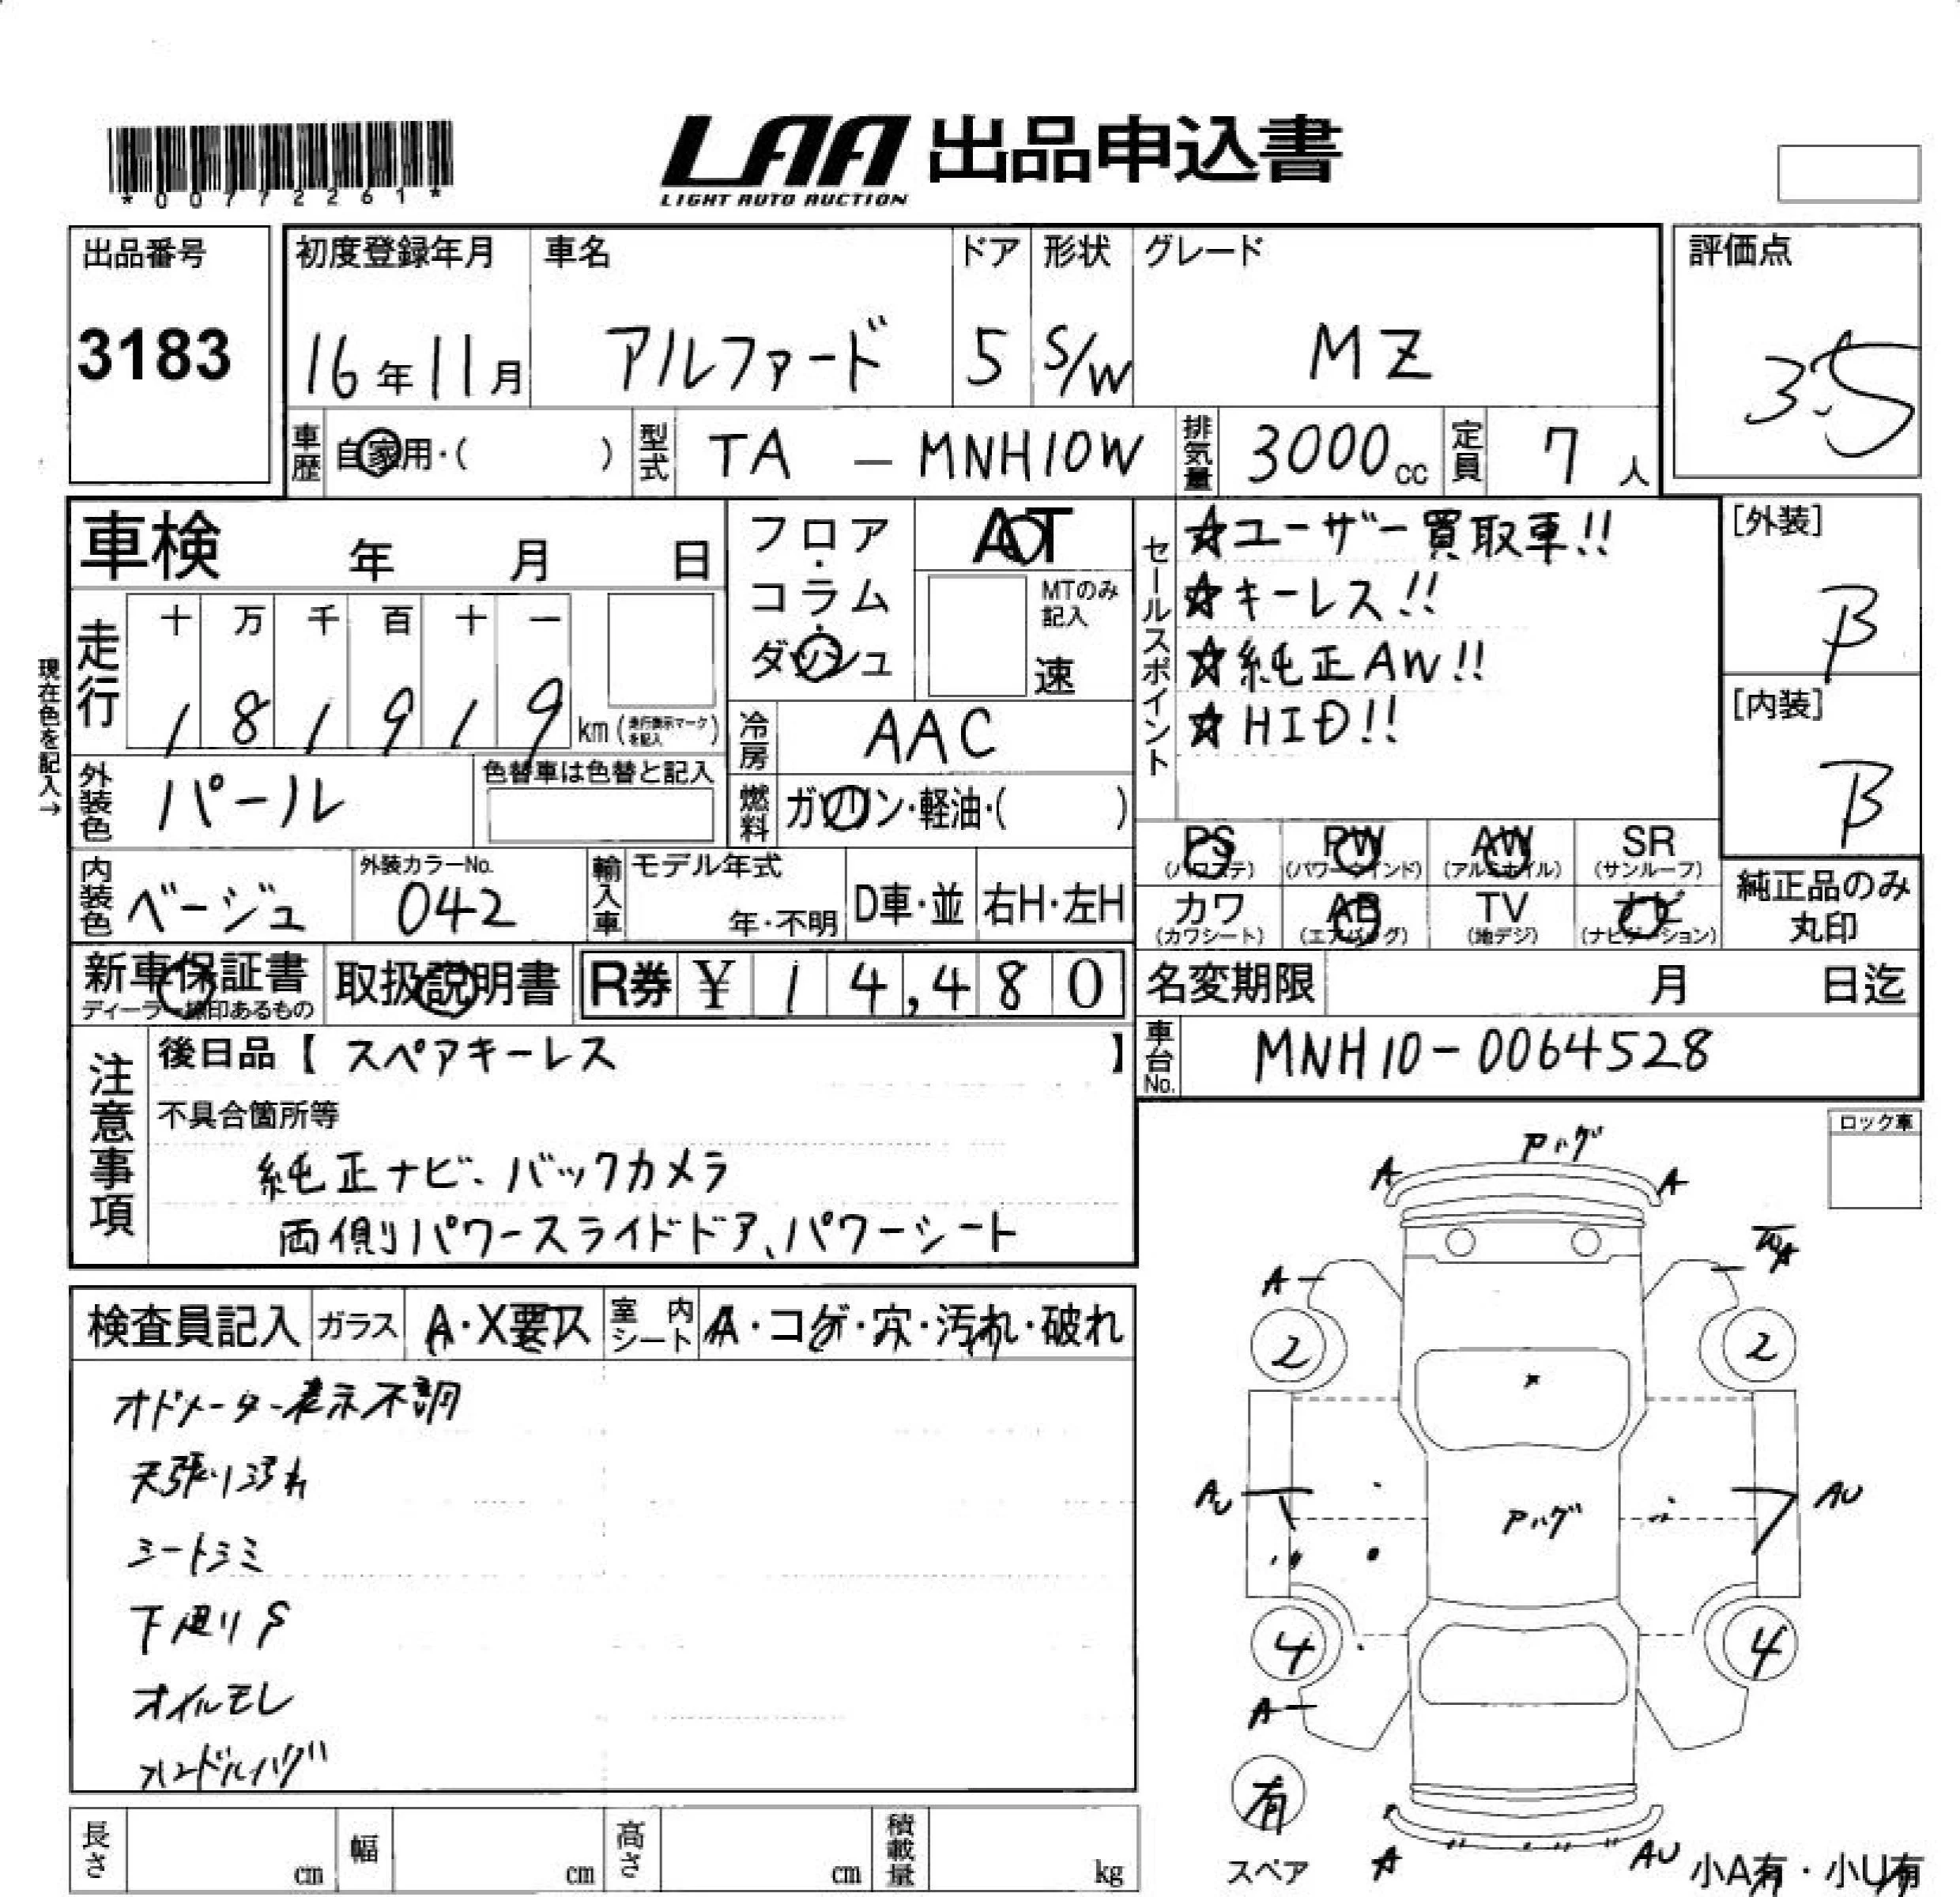 *00772261*
LAA 出品申込書
LIGHT AUTO AUCTION
出品番号
3183
初度登録年月
16年11月
車名
アルファード
ドア
5
形状
S/W
グレード
MZ
評価点
3.5
車歴 自家用・( )
型式 TA - MNH10W
排気量 3000cc
定員 7人
車検 年 月 日
フロア・コラム・ダッシュ
AT
MTのみ記入
速
現在色を記入→
走行
十 万 千 百 十 一
1 8 1 9 1 9 km(走行表示マークを記入)
冷房 AAC
外装色 パール
色替車は色替と記入
燃料 ガソリン・軽油・( )
セールスポイント
☆ユーザー買取車!!
☆キーレス!!
☆純正AW!!
☆HID!!
[外装]
B
[内装]
B
内装色 ベージュ
外装カラーNo.
042
輸入車 モデル年式
年・不明 D車・並 右H・左H
PS (パワステ) PW (パワーウインド) AW (アルミホイル) SR (サンルーフ)
カワ (カワシート) AB (エアバッグ) TV (地デジ) ナビ (ナビゲーション)
純正品のみ丸印
新車保証書
取扱説明書
R券 ¥14,480
名変期限 月 日迄
車台No. MNH10-0064528
注意事項
後日品【 スペアキーレス 】
不具合箇所等
純正ナビ、バックカメラ
両側パワースライドドア、パワーシート
ロック車
検査員記入 ガラス A・X要ス 室内シート A・コゲ・穴・汚れ・破れ
オドメーター表示不調
シートシミ
下廻りS
オイルモレ
A A
A
2 2
AU AU
4 4
A
有
スペア
A AU
小A有・小U有
長さ cm 幅 cm 高さ cm 積載量 kg